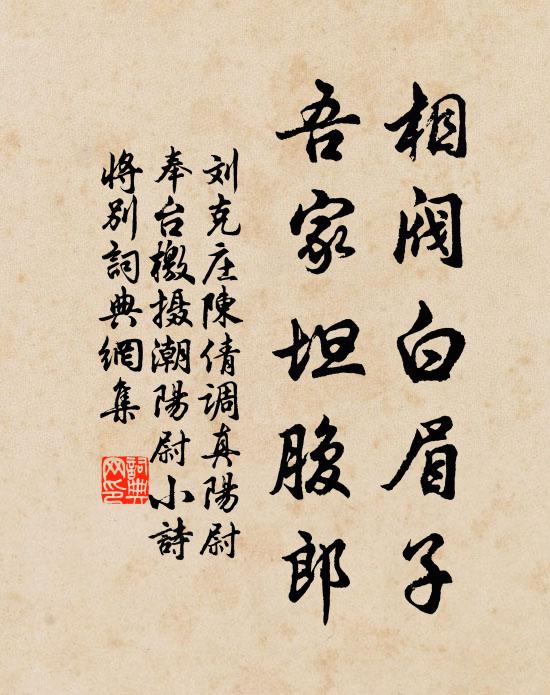 相阀白眉子
吾家坦腹郎
刘克庄陳倩调真陽尉
奉台檄摄潮陽尉小詩
将别詞典網集
詞典网印